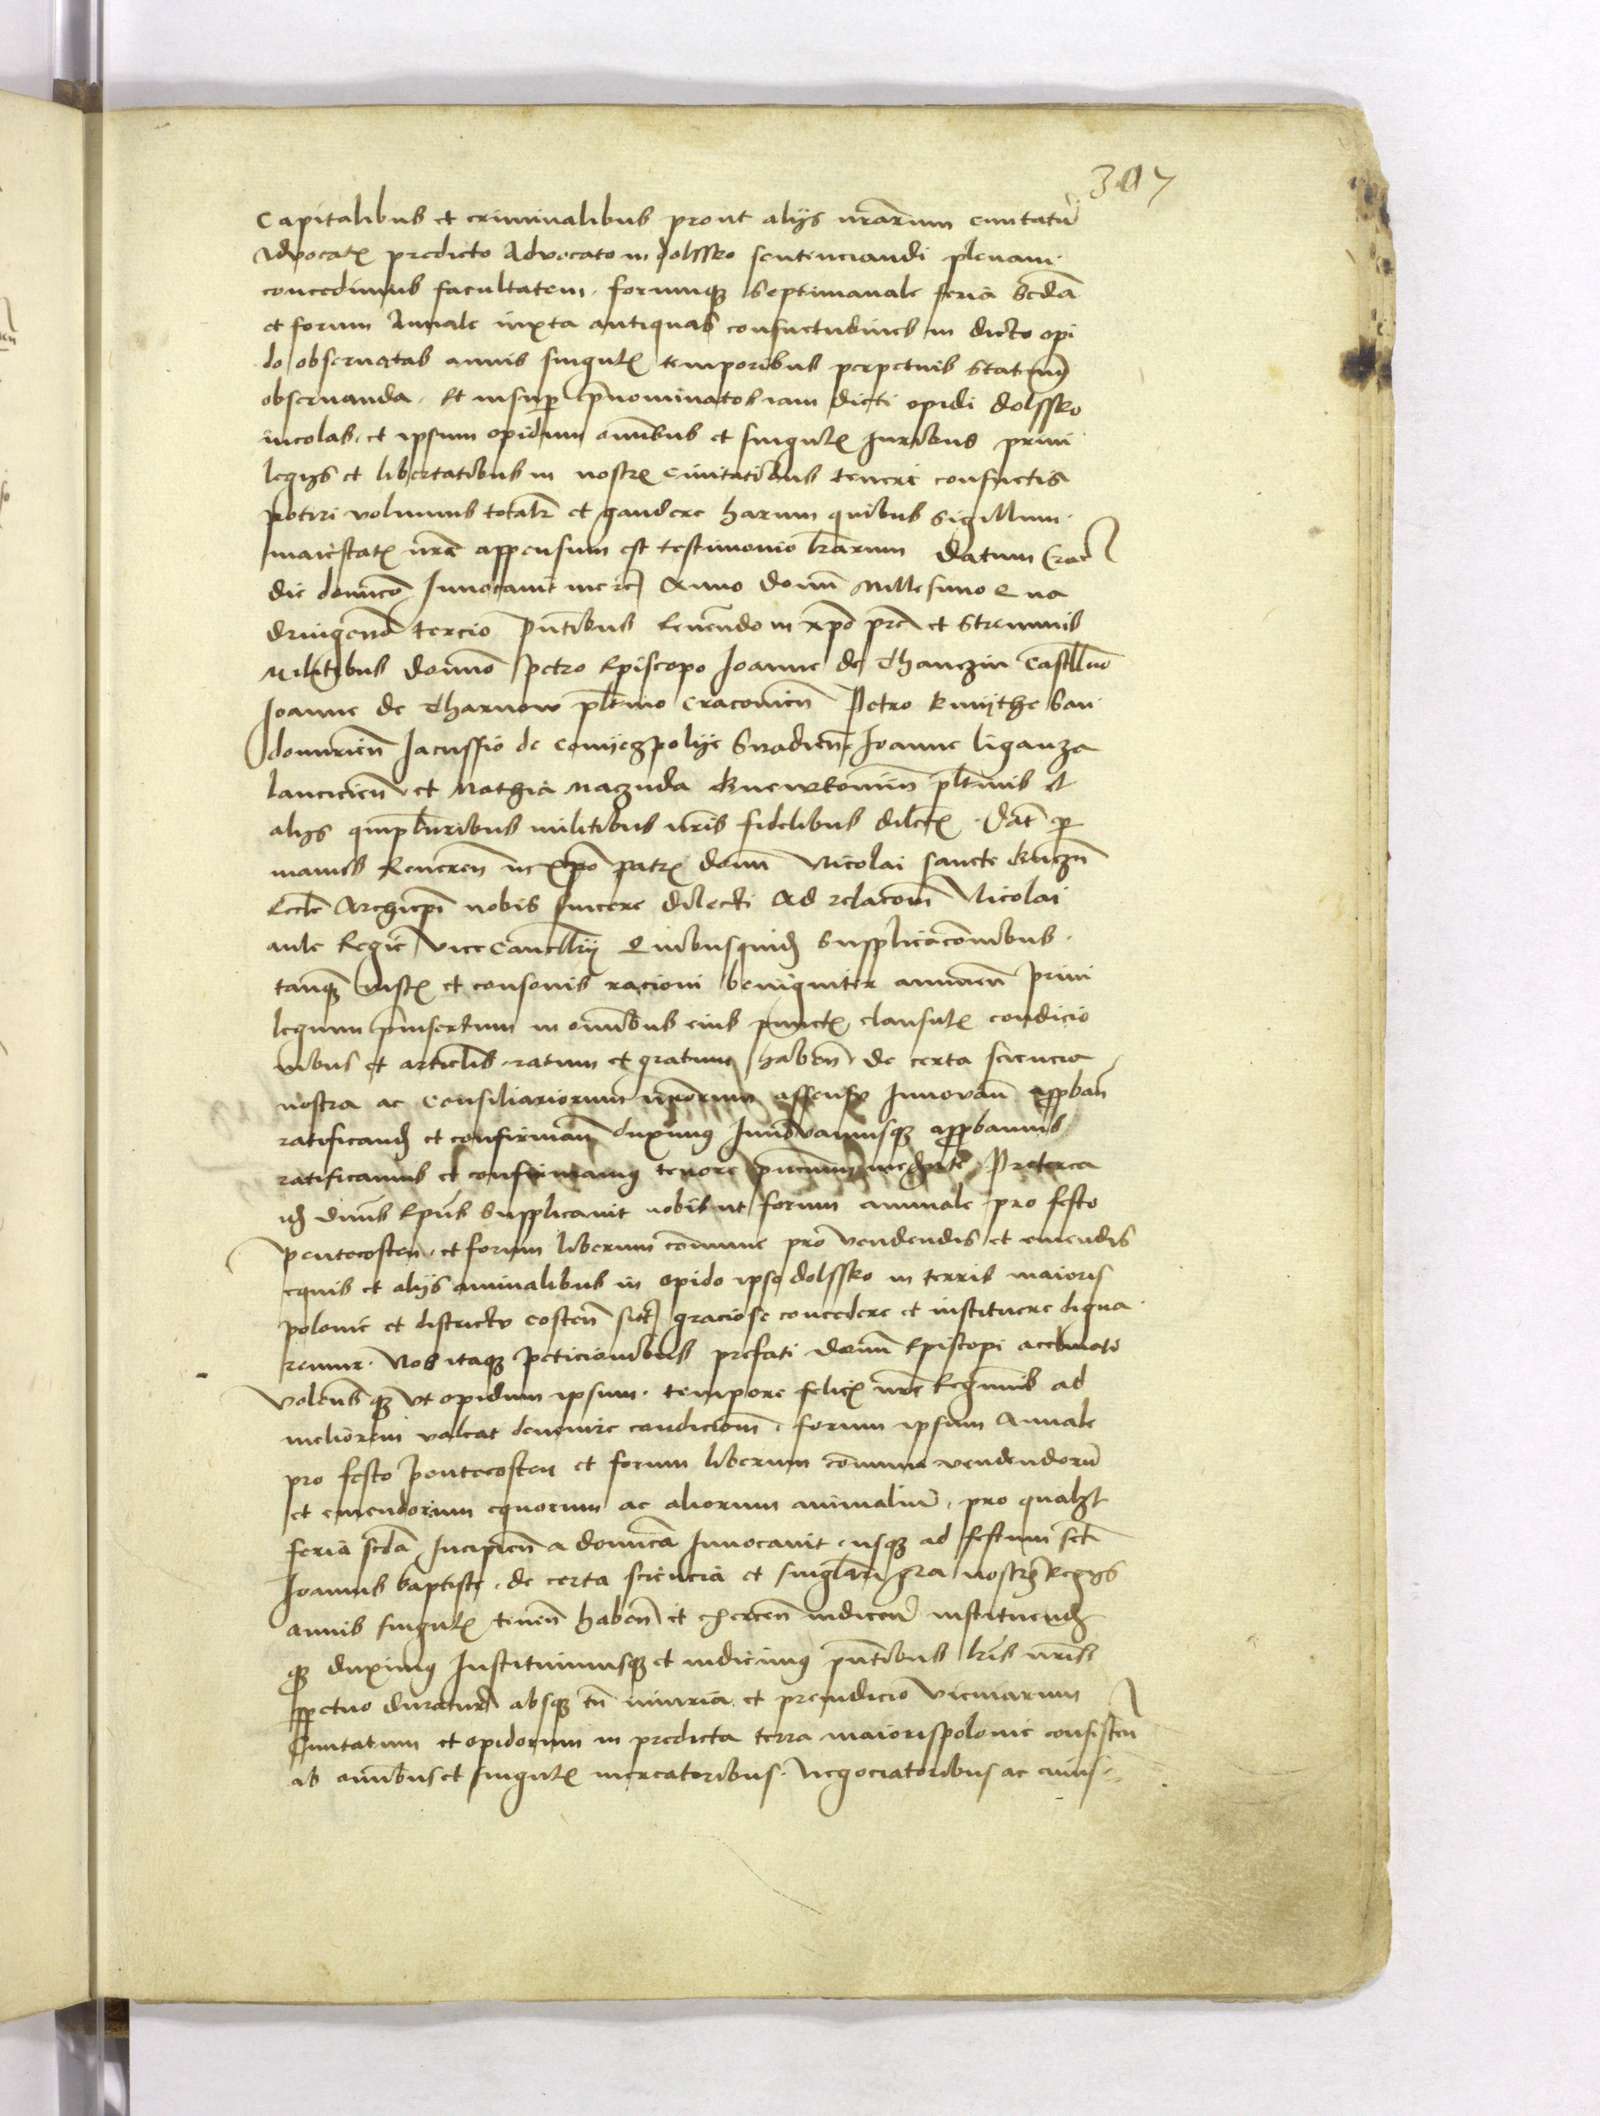 307
capitalibus et criminalibus prout alijs nrarum ciuitatū
Advocatis predicto Advocato in dolssko sentenciandi plenam
concedimus facultatem. forumqꝫ Septimanale feria Scdā
et forum Annale iuxta antiquas consuetudines in dicto opi
do obseruatas annis singulis temporibus perpetuis statuimꝰ
obseruanda. Et insuꝑ prēnominatos iam dicti opidi dolssko
incolas et ipsum opidum omībus et singulis Iuribus priui
legijs et libertatibus in nostris Ciuitatibus teneri consuetis
potiri volumus totalr et gaudere harum quibus Sigillum
maiestatis nrē appensum est testimonio lrarum Datum Crac
die domīco Inuocauit me rc Anno domī Millesimo Qua
dringento tercio Pntibus Reuerēdo in xpo prē et Strennuis
Militibus domīo Petro Episcopo Ioanne de Thanczin Castellano
Ioanne de Tharnow pltino Cracouien Petro kmythe San
domirien Iacussio de Conyeczpolye Siradien Ioanne liganza
lancicien et Mathia Naczuda Gnewkouien pltinis et
alijs qmplurib­us militibus nris fidelibus dilectis. Dat ꝑ
manus Reueren in xpo patris domī Nicolai sancte Gnezn
Eccle Archiepi nobis sincere dilecti Ad relacōem Nicolai
aule Regie vice Cancellrij Quibusquidē Supplicacōnibus
tanqꝫ iustis et consonis racioni benigniter annuen Priui
legium prinsertum in omībus eius punctis clausulis condicio
nibus et articlis ratum et gratum haben de certa sciencia
nostra ac Consiliariorum nrorum assensu Innouan approban
ratificand et confirman duximꝰ Innouamusqꝫ approbamus
ratificamus et confirmamꝰ tenore pncium mediante Preterea
idē dnus Epus Supplicauit nobis ut forum annuale pro festo
Pentecosten. et forum liberum comune pro vendendis et emendis
equis et alijs animalibus in opido ipso dolssko in terris maioris
polonie et districtu Costen sito graciose concedere et instituere digna
remur. Nos itaqꝫ Peticionibus prefati domī Episcopi acclinati
volentes qꝫ ut opidum ipsum tempore felicis nrē Regiminis ad
meliorem valeat deuenire condicionē. forum ipsum Annale
pro festo Pentecosten et forum liberum comune vendendorū
et emendorum equorum ac aliorum animaliū. pro qualzt
feria scda Incipien a domīca Inuocauit usqꝫ ad festum scti
Ioannis baptiste. de certa sciencia et singlari gra nostra Regia
annis singulis tenen haben et exercen indicen instituend
qꝫ duximꝰ Instituimusqꝫ et indicimꝰ pntibus lris nris
ꝑpetuo duratur absqꝫ tn iniuria et preiudicio vicinarum
Ciuitatum et opidorum in predicta terra maiorispolonie consisten
ab omnibus et singulis mercatoribus. Negociatoribus ac cuius